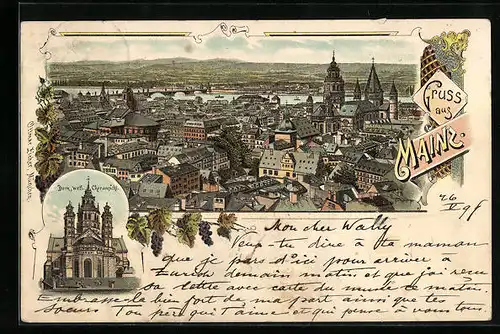 Gruss
aus
MAINZ.
Dom, westl. Choransicht.
26
V 98
Mon cher Wally
Veux tu dire à ta maman
que je pars d'ici pour arriver à
Zurich demain matin et que j'ai reçu
sa lettre avec carte du musée ce matin.
Embrasse la bien fort de ma part ainsi que tes
sœurs Ton père qui t'aime et qui pense à vous tous